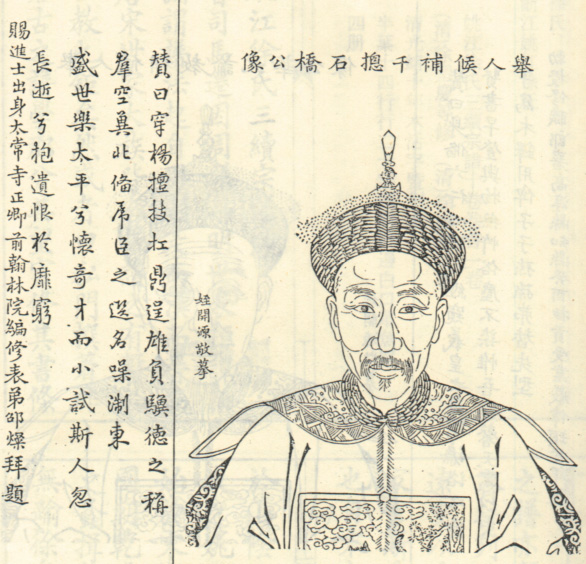 舉人候補千摠石橋公像
姪開源敬摹
贊曰穿楊擅技扛鼎逞雄負驥德之稱
羣空冀北偹虎臣之選名噪淛東
盛世樂太平兮懷奇才而小試斯人忽
長逝兮抱遺恨於靡窮
賜進士出身太常寺正卿前翰林院編修表弟邵燦拜題